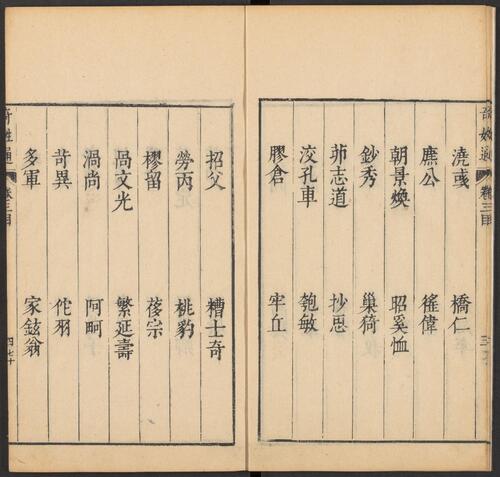 奇姓通 卷三目
澆彧 橋仁
麃公 徭偉
朝景煥 昭奚恤
鈔秀 巢猗
茆志道 抄思
洨孔車 匏敏
膠倉 牢丘
招父 糟士奇
勞丙 桃豹
樛留 蓚宗
咼文光 繁延壽
渦尚 阿
苛異 佗羽
多軍 家鉉翁
奇姓通 卷三目 四 七十